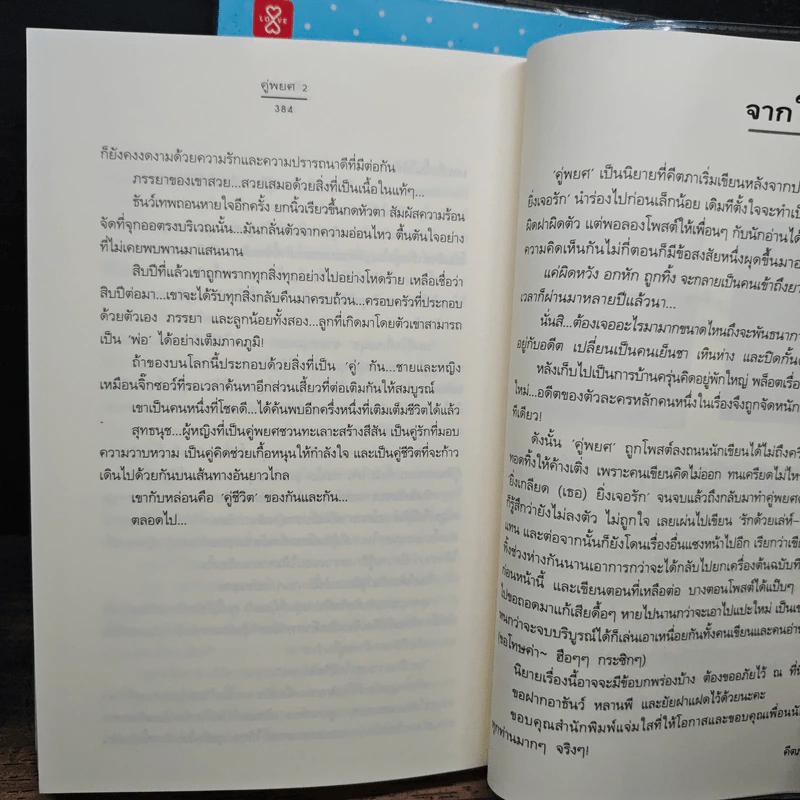 LOVE
คู่พยศ 2
384
ก็ยังคงงดงามด้วยความรักและความปรารถนาดีที่มีต่อกัน
ภรรยาของเขาสวย...สวยเสมอด้วยสิ่งที่เป็นเนื้อในแท้ๆ...
ธันว์เทพถอนหายใจอีกครั้ง ยกนิ้วเรียวขึ้นกดหัวตา สัมผัสความร้อน
จัดที่จุกออตรงบริเวณนั้น...มันกลั่นตัวจากความอ่อนไหว ตื้นตันใจอย่าง
ที่ไม่เคยพบพานมาแสนนาน
สิบปีที่แล้วเขาถูกพรากทุกสิ่งทุกอย่างไปอย่างโหดร้าย เหลือเชื่อว่า
สิบปีต่อมา...เขาจะได้รับทุกสิ่งกลับคืนมาครบถ้วน...ครอบครัวที่ประกอบ
ด้วยตัวเอง ภรรยา และลูกน้อยทั้งสอง...ลูกที่เกิดมาโดยตัวเขาสามารถ
เป็น 'พ่อ' ได้อย่างเต็มภาคภูมิ!
ถ้าของบนโลกนี้ประกอบด้วยสิ่งที่เป็น 'คู่' กัน...ชายและหญิง
เหมือนจิ๊กซอว์ที่รอเวลาค้นหาอีกส่วนเสี้ยวที่ต่อเติมกันให้สมบูรณ์
เขาเป็นคนหนึ่งที่โชคดี...ได้ค้นพบอีกครึ่งหนึ่งที่เติมเต็มชีวิตได้แล้ว
สุทธนุช...ผู้หญิงที่เป็นคู่พยศชวนทะเลาะสร้างสีสัน เป็นคู่รักที่มอบ
ความวาบหวาม เป็นคู่คิดช่วยเกื้อหนุนให้กำลังใจ และเป็นคู่ชีวิตที่จะก้าว
เดินไปด้วยกันบนเส้นทางอันยาวไกล
เขากับหล่อนคือ 'คู่ชีวิต' ของกันและกัน...
ตลอดไป...
จาก
'คู่พยศ' เป็นนิยายที่คีตภาเริ่มเขียนหลังจาก
ยิ่งเจอรัก' นำร่องไปก่อนเล็กน้อย เดิมทีตั้งใจจะทำ
ผิดฝาผิดตัว แต่พอลองโพสต์ให้เพื่อนๆ กับนักอ่านได้
ความคิดเห็นกันไม่กี่ตอนก็มีข้อสงสัยหนึ่งผุดขึ้นมา
แค่ผิดหวัง อกหัก ถูกทิ้ง จะกลายเป็นคนเข้าถึง
เวลาก็ผ่านมาหลายปีแล้วนา...
นั่นสิ...ต้องเจออะไรมามากขนาดไหนถึงจะพันธนาการ
อยู่กับอดีต เปลี่ยนเป็นคนเย็นชา เหินห่าง และปิดกั้น
หลังเก็บไปเป็นการบ้านครุ่นคิดอยู่พักใหญ่ พล็อตเรื่อง
ใหม่...อดีตของตัวละครหลักคนหนึ่งในเรื่องจึงถูกจัดหนัก
ทีเดียว!
ดังนั้น 'คู่พยศ' ถูกโพสต์ลงถนนนักเขียนได้ไม่ถึง
ทอดทิ้งให้ค้างเติ่ง เพราะคนเขียนคิดไม่ออก ทนเครียดไม่ไหว
'ยิ่งเกลียด (เธอ) ยิ่งเจอรัก' จนจบแล้วถึงกลับมาทำคู่พยศ
ก็รู้สึกว่ายังไม่ลงตัว ไม่ถูกใจ เลยเผ่นไปเขียน 'รักด้วยเล่ห์-
แทน และต่อจากนั้นก็ยังโดนเรื่องอื่นแซงหน้าไปอีก เรียกว่า
ทิ้งช่วงห่างกันนานเอาการกว่าจะได้กลับไปยกเครื่องต้นฉบับที่
ก่อนหน้านี้ และเขียนตอนที่เหลือต่อ บางตอนโพสต์ได้แป๊บๆ
ไปขอถอดมาแก้เสียดื้อๆ หายไปนานกว่าจะเอาไปแปะใหม่ เป็น
ทนกว่าจะจบบริบูรณ์ได้ก็เล่นเอาเหนื่อยกันทั้งคนเขียนและคนอ่าน
(ขอโทษค่า~ ฮือๆๆ กระซิกๆ)
นิยายเรื่องนี้อาจจะมีข้อบกพร่องบ้าง ต้องขออภัยไว้ ณ ที่นี้
ขอฝากอาธันว์ หลานพี และยัยฝาแฝดไว้ด้วยนะคะ
ขอบคุณสำนักพิมพ์แจ่มใสที่ให้โอกาสและขอบคุณเพื่อน
ทุกท่านมากๆ จริงๆ!
คีตภ